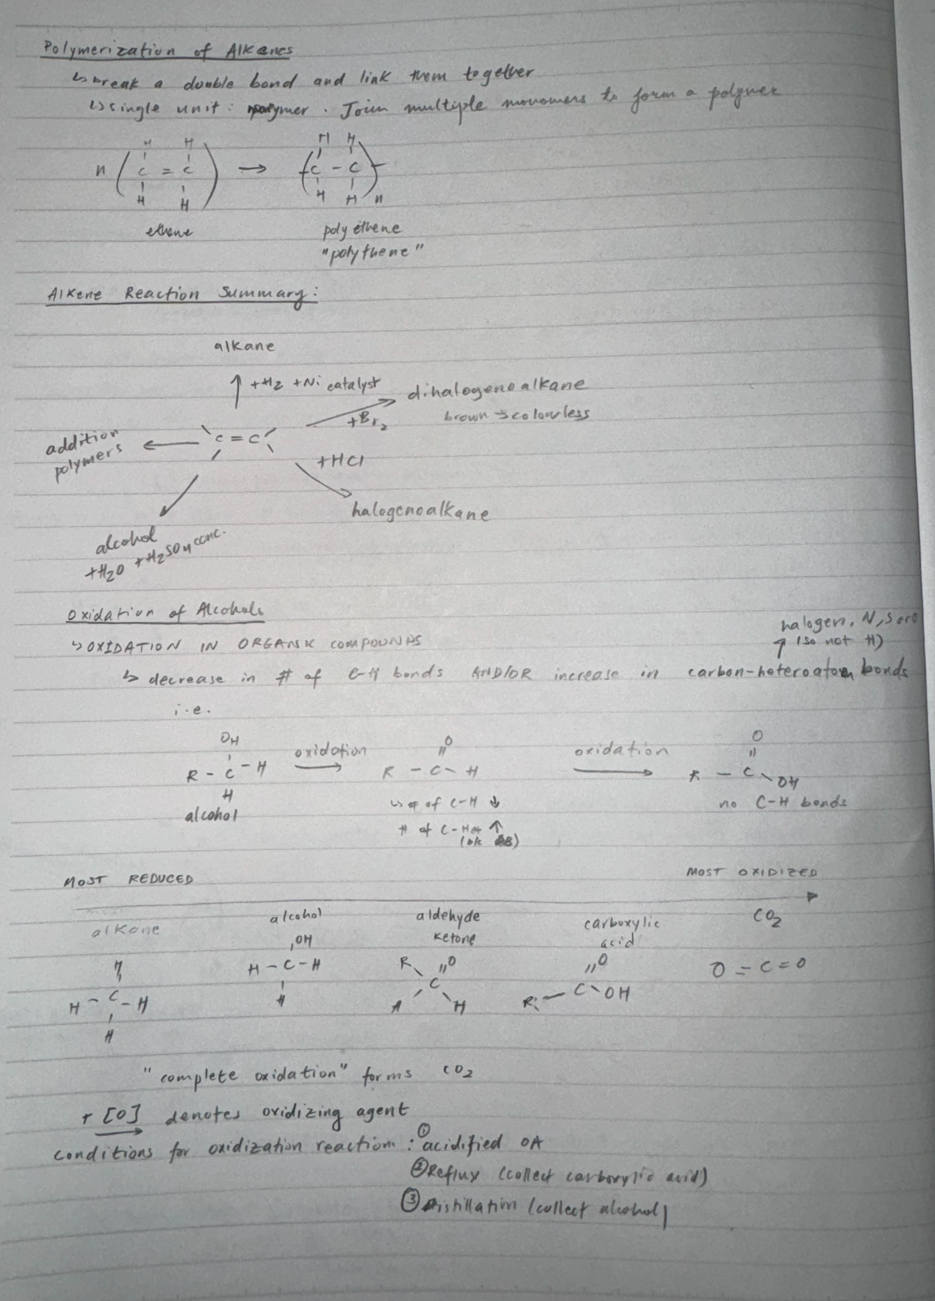 Polymerization of Alkenes
↳ break a double bond and link them together
↳ single unit : . Join multiple monomers to form a polymer
H H H H
n ( C = C ) → ( C - C )
H H H H n
ethene poly ethene
"polythene"
Alkene Reaction Summary:
alkane
↑ +H2 +Ni catalyst
dihalogenoalkane
+Br2 brown → colourless
addition polymers ← C = C
+HCl
halogenoalkane
alcohol
+H2O +H2SO4 conc.
Oxidation of Alcohols
halogen, N, S or O
↳ OXIDATION IN ORGANIC COMPOUNDS
↑ (so not H)
↳ decrease in # of C-H bonds AND/OR increase in carbon-heteroatom bonds
i.e.
OH O O
R - C - H oxidation → R - C - H oxidation → R - C - OH
H
alcohol
↳ # of C-H ↓
no C-H bonds
# of C-Het ↑
MOST REDUCED MOST OXIDIZED
alkane alcohol aldehyde ketone carboxylic acid CO2
H OH R O O
H - C - H H - C - H C R - C - OH O = C = O
H H H
"complete oxidation" forms CO2
+ [O] denotes oxidizing agent
conditions for oxidization reaction : ① acidified OA
② Reflux (collect carboxylic acid)
③ Distillation (collect alcohol)